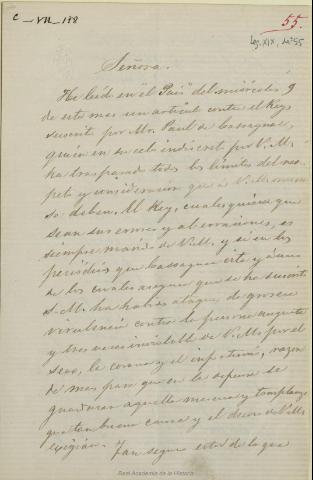 C-VII-188
55.
Leg. XIX, nº 55
Señora.
He leido en "el Pais" del miércoles 9
de este mes un articulo contra el Rey
suscrito por Mr. Paul de Cassagnac,
quien en su celo indiscreto por V. M.
ha traspasado todos los límites del res-
peto y consideracion que á V. M. mismo
se deben. El Rey, cualesquiera que
sean sus errores y aberraciones, es
siempre marido de V. M., y si en los
periódicos que Cassagnac cita y á uno
de los cuales asegura que se ha suscrito
S. M. ha habido ataques de grosera
virulencia contra la persona augusta
y tres veces inviolable de V. M. por el
sexo, la corona y el infortunio, razon
de mas para que en la defensa se
guardaran aquella mesura y templanza
que tan buena causa y el decoro de V. M.
exigian. Tan seguro estoy de lo que
Real Academia de la Historia